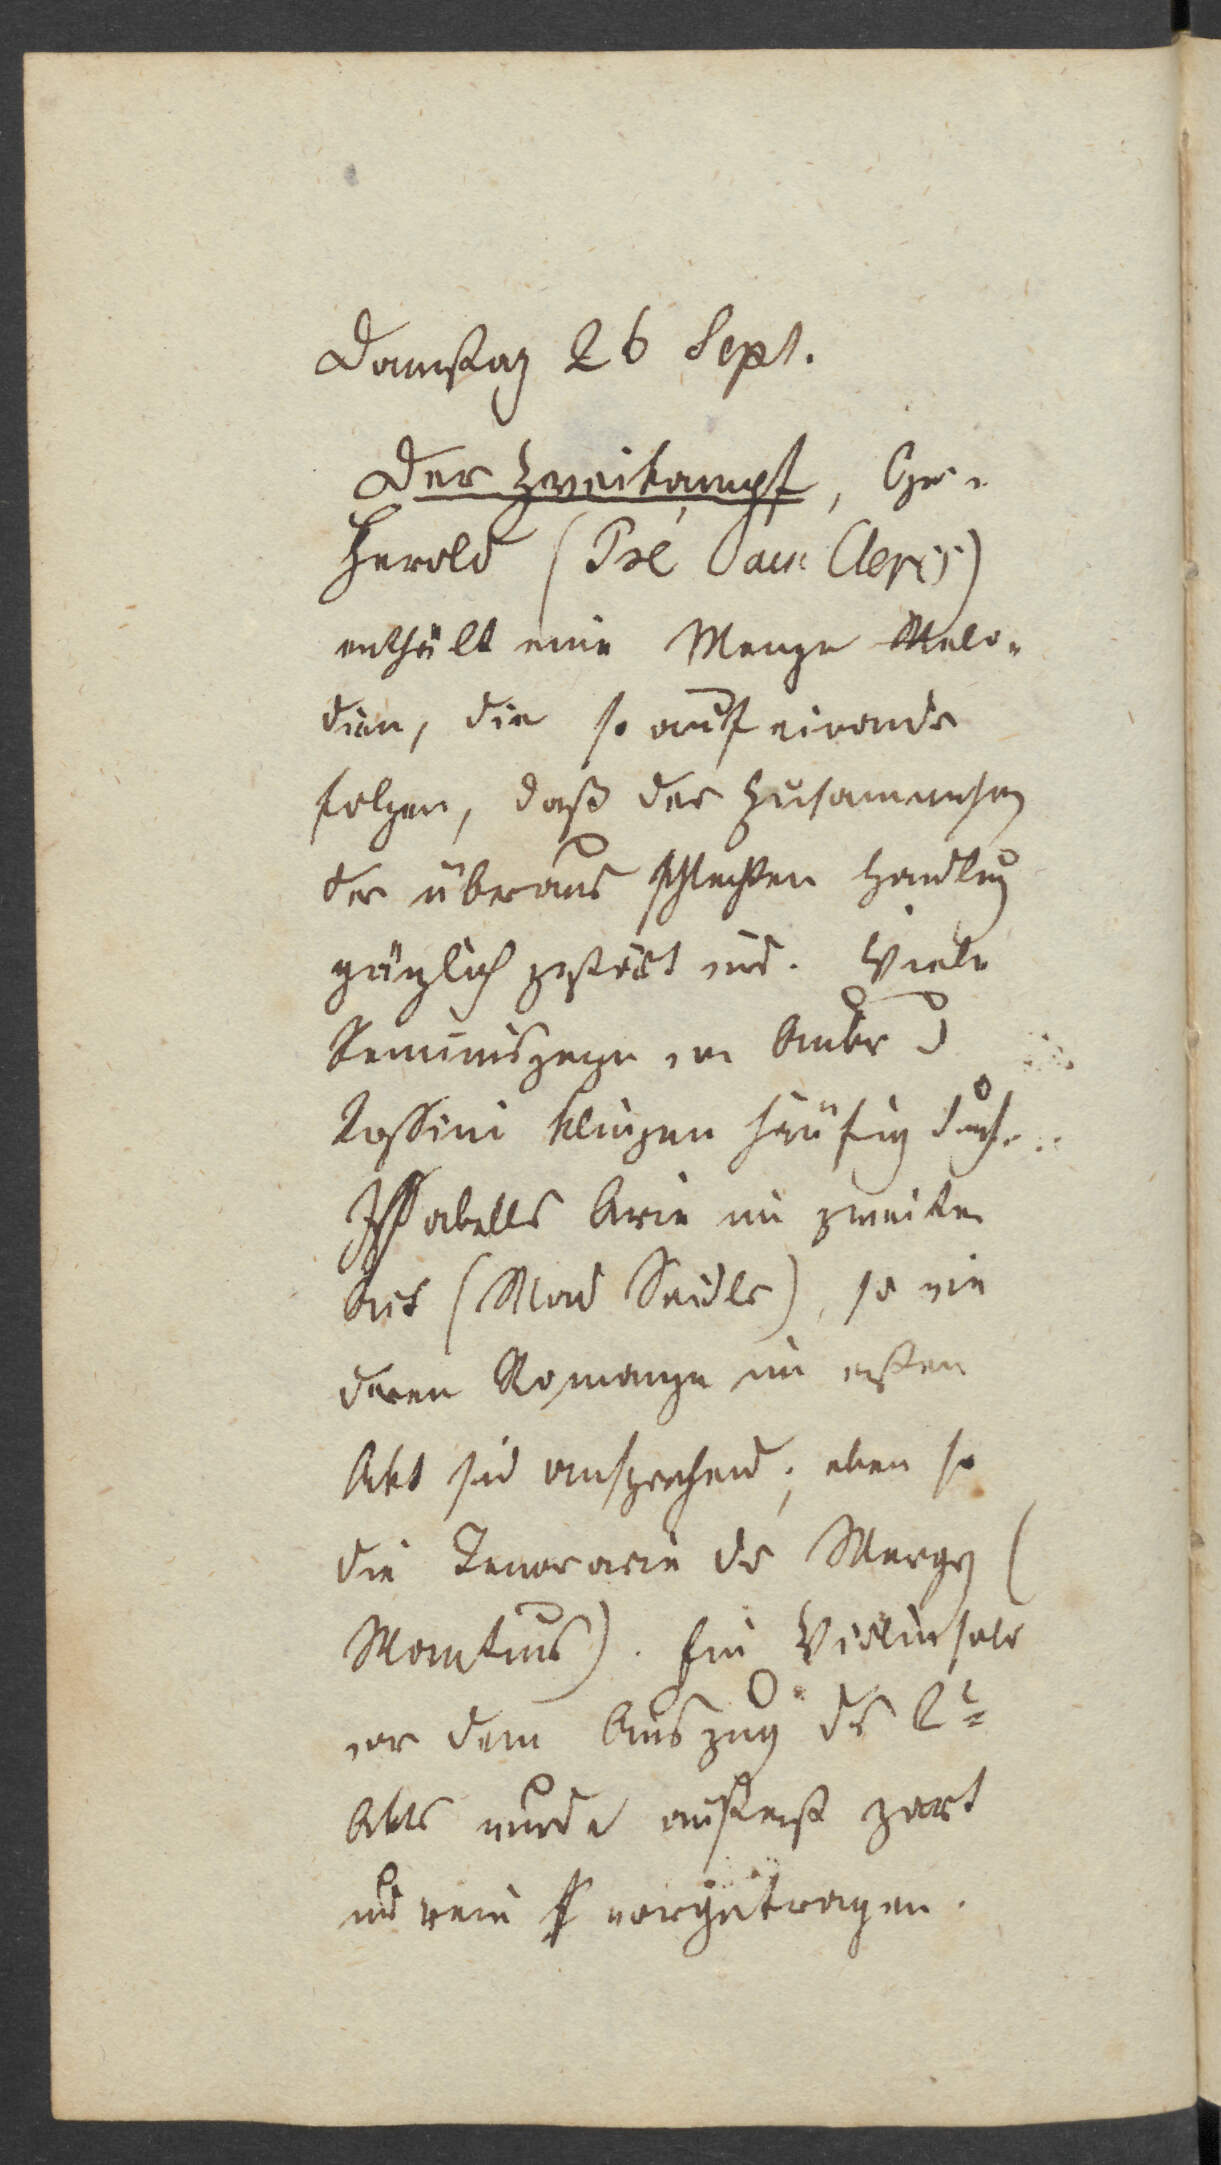 Samstag 26 Sept.
Der Zweikampf, Oper v
Herold (Pré aux Clercs)
enthält eine Menge Melo-
dien, die so auf einander
folgen, daß der Zusammenhang
der überaus schlechten Handlung
gänzlich gestört wird. Viele
Reminiszenzen an Auber u
Rossini klingen häufig durch.
Isabells Arie im zweiten
Act (Mad Seidler), so wie
deren Romanze im ersten
Akt sind ansprechend; eben so
die Tenorarie des Mergy (
Mantius). Ein Violinsolo
vor dem Aufzug des 2t
Akts wurde äußerst zart
und rein vorgetragen.